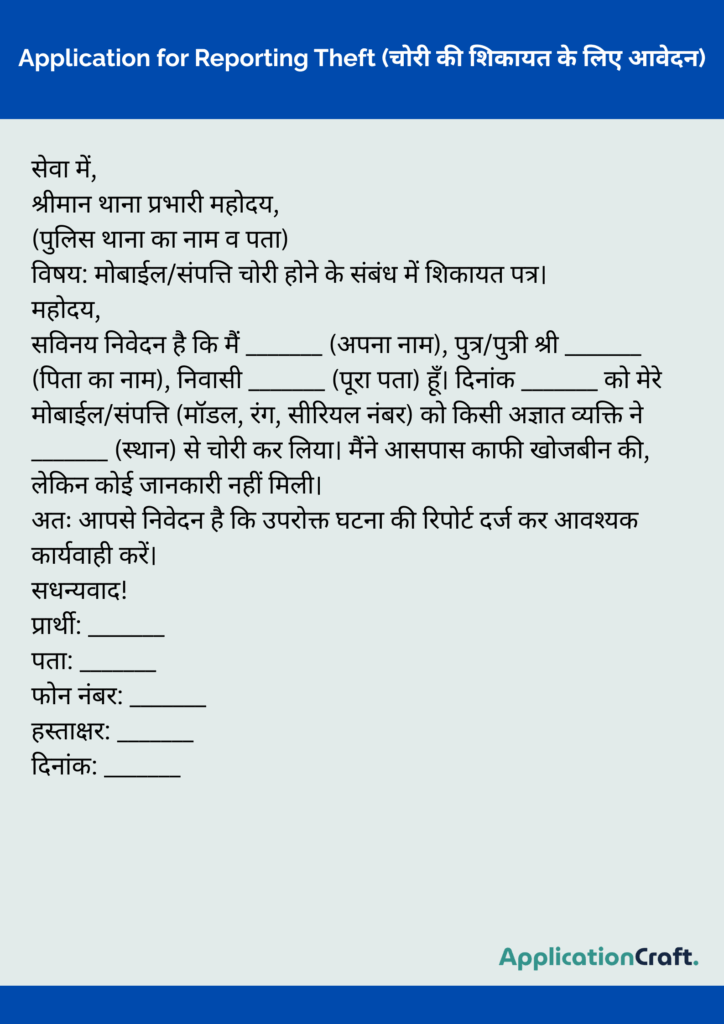 Application for Reporting Theft (चोरी की शिकायत के लिए आवेदन)
सेवा में,
श्रीमान थाना प्रभारी महोदय,
(पुलिस थाना का नाम व पता)
विषय: मोबाईल/संपत्ति चोरी होने के संबंध में शिकायत पत्र।
महोदय,
सविनय निवेदन है कि मैं _______ (अपना नाम), पुत्र/पुत्री श्री _______
(पिता का नाम), निवासी _______ (पूरा पता) हूँ। दिनांक _______ को मेरे
मोबाईल/संपत्ति (मॉडल, रंग, सीरियल नंबर) को किसी अज्ञात व्यक्ति ने
_______ (स्थान) से चोरी कर लिया। मैंने आसपास काफी खोजबीन की,
लेकिन कोई जानकारी नहीं मिली।
अतः आपसे निवेदन है कि उपरोक्त घटना की रिपोर्ट दर्ज कर आवश्यक
कार्यवाही करें।
सधन्यवाद!
प्रार्थी: _______
पता: _______
फोन नंबर: _______
हस्ताक्षर: _______
दिनांक: _______
ApplicationCraft.